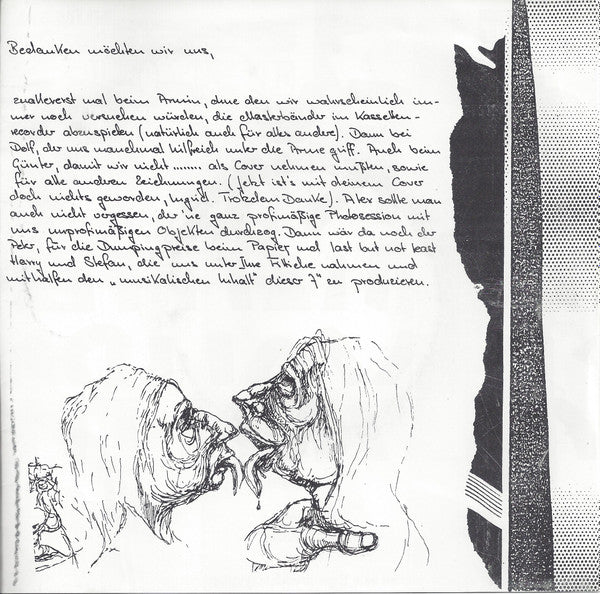 Bedanken möchten wir uns,
zuallererst mal beim Armin, ohne den wir wahrscheinlich im-
mer noch versuchen würden, die Masterbänder im Kassetten-
recorder abzuspielen (natürlich auch für alles andere). Dann bei
Dolf, der uns manchmal hilfreich unter die Arme griff. Auch beim
Günter, damit wir nicht ........ als Cover nehmen mußten, sowie
für alle anderen Zeichnungen. (Jetzt ist's mit deinem Cover
doch nichts geworden, Ingrid. Trotzdem Danke). Alex sollte man
auch nicht vergessen, der 'ne ganz profimäßige Photosession mit
uns unprofimäßigen Objekten durchzog. Dann wär da noch der
Peter, für die Dumpingpreise beim Papier und last but not least
Harry und Stefan, die uns unter Ihre Fittiche nahmen und
mithalfen den „musikalischen Inhalt" dieser 7" zu produzieren.